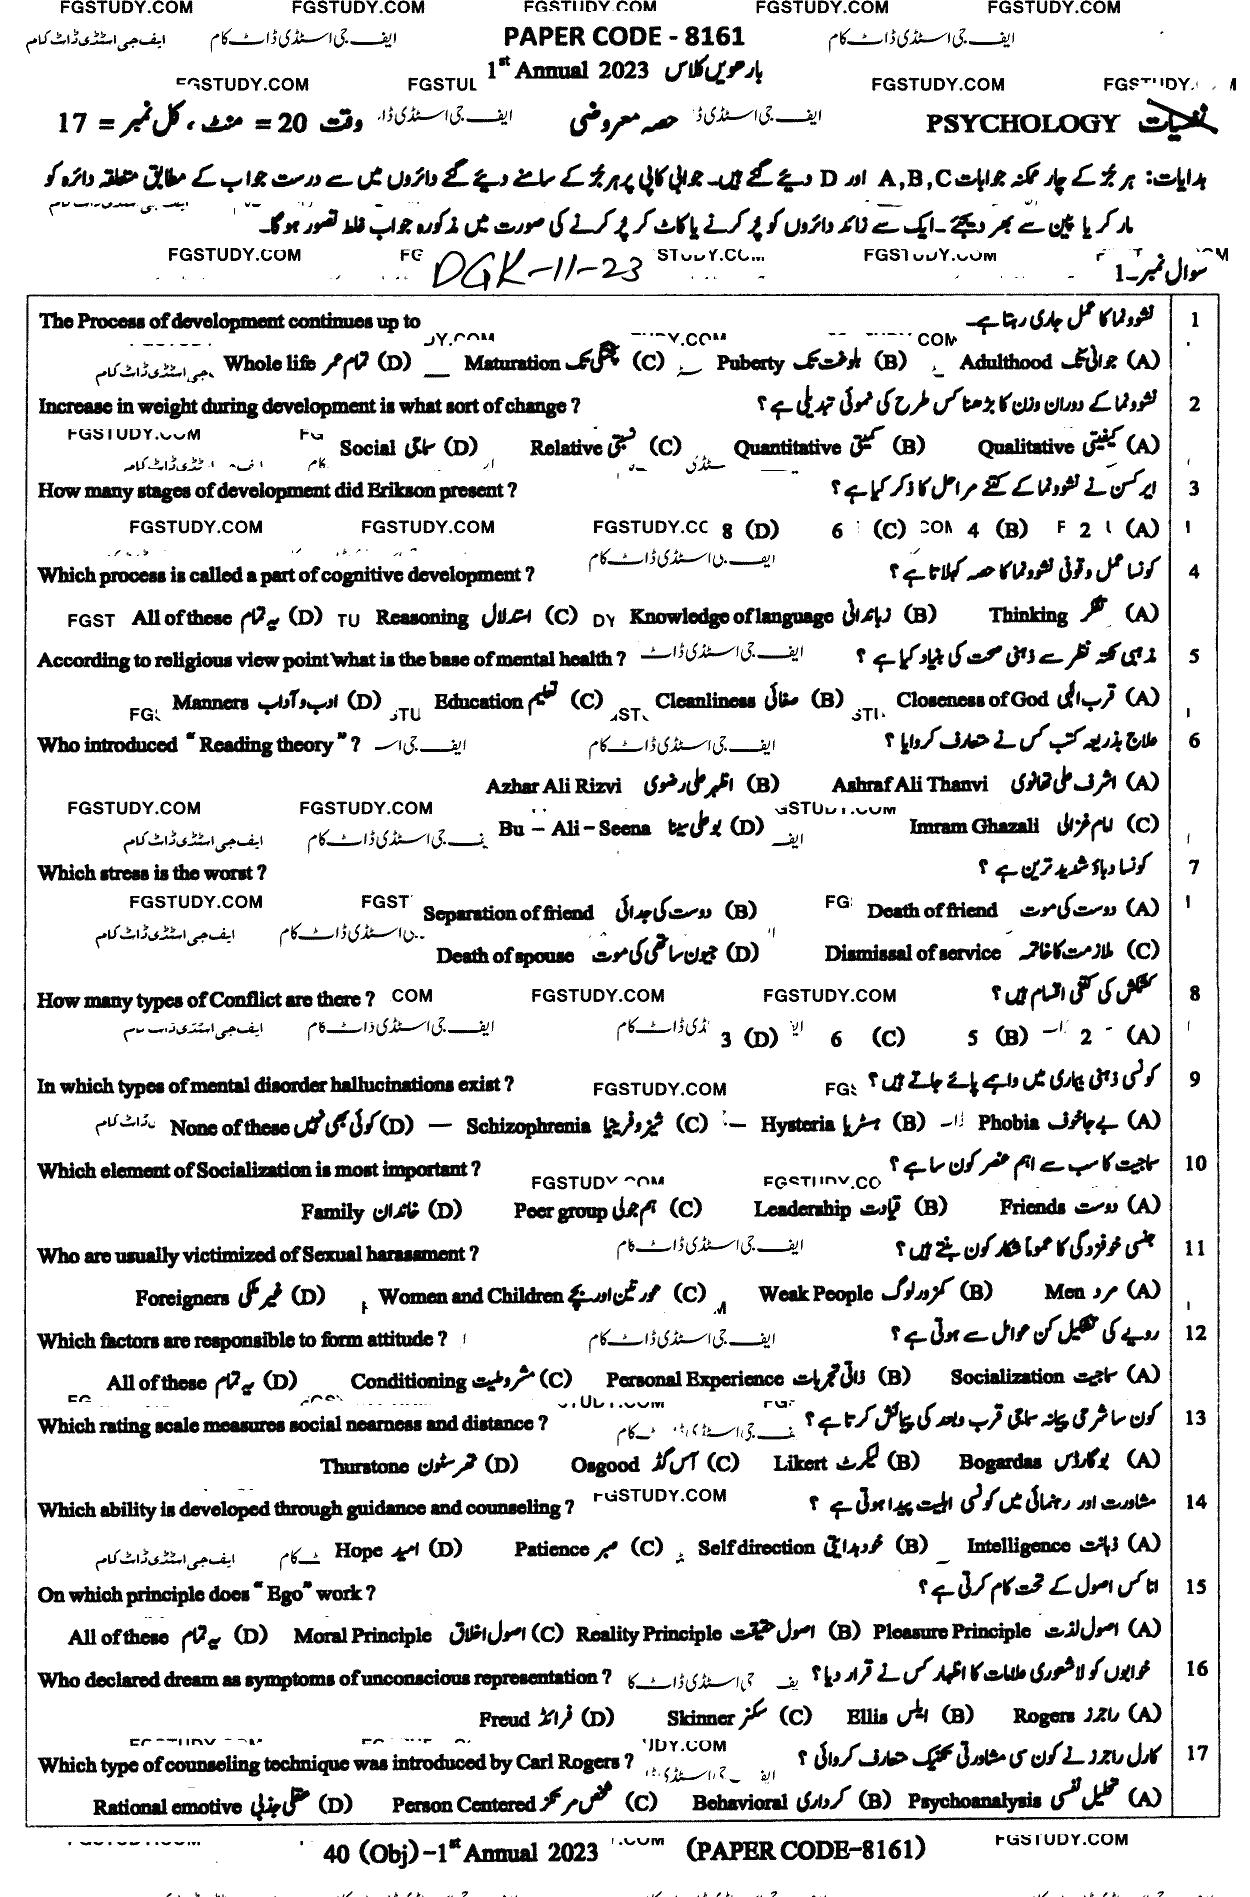 FGSTUDY.COM FGSTUDY.COM FGSTUDY.COM FGSTUDY.COM FGSTUDY.COM
ایف جی اسٹڈی ڈاٹ کام ایف جی اسٹڈی ڈاٹ کام PAPER CODE - 8161 ایف جی اسٹڈی ڈاٹ کام
1st Annual 2023 بارھویں کلاس
FGSTUDY.COM FGSTUDY.COM FGSTUDY.COM
PSYCHOLOGY نفسیات حصہ معروضی وقت = 20 منٹ ، کل نمبر = 17
ہدایات: ہر جز کے چار ممکنہ جوابات A,B,C اور D دیئے گئے ہیں۔ جوابی کاپی پر ہر جز کے سامنے دیئے گئے دائروں میں سے درست جواب کے مطابق متعلقہ دائرہ کو
مارکر یا پین سے بھر دیجئے۔ ایک سے زائد دائروں کو پُر کرنے یا کاٹ کر پُر کرنے کی صورت میں مذکورہ جواب غلط تصور ہوگا۔
FGSTUDY.COM DGK-11-23
سوال نمبر-1
1 نشوونما کا عمل جاری رہتا ہے۔ The Process of development continues up to
(A) جوانی تک Adulthood (B) بلوغت تک Puberty (C) پختگی تک Maturation (D) تمام عمر Whole life
2 نشوونما کے دوران وزن کا بڑھنا کس طرح کی نموئی تبدیلی ہے؟ Increase in weight during development is what sort of change ?
(A) کیفیتی Qualitative (B) کمیتی Quantitative (C) نسبتی Relative (D) سماجی Social
3 ایرکسن نے نشوونما کے کتنے مراحل کا ذکر کیا ہے؟ How many stages of development did Erikson present ?
(A) 2 (B) 4 (C) 6 (D) 8
4 کونسا عمل وقوفی نشوونما کا حصہ کہلاتا ہے؟ Which process is called a part of cognitive development ?
(A) تفکر Thinking (B) زباندانی Knowledge of language (C) استدلال Reasoning (D) یہ تمام All of these
5 مذہبی نکتہ نظر سے ذہنی صحت کی بنیاد کیا ہے؟ According to religious view point what is the base of mental health ?
(A) قرب الٰہی Closeness of God (B) صفائی Cleanliness (C) تعلیم Education (D) ادب و آداب Manners
6 علاج بذریعہ کتب کس نے متعارف کروایا؟ Who introduced “ Reading theory” ?
(A) اشرف علی تھانوی Ashraf Ali Thanvi (B) اظہر علی رضوی Azhar Ali Rizvi
(C) امام غزالی Imram Ghazali (D) بوعلی سینا Bu – Ali – Seena
7 کونسا دباؤ شدید ترین ہے؟ Which stress is the worst ?
(A) دوست کی موت Death of friend (B) دوست کی جدائی Separation of friend
(C) ملازمت کا خاتمہ Dismissal of service (D) جیون ساتھی کی موت Death of spouse
8 کشمکش کی کتنی اقسام ہیں؟ How many types of Conflict are there ?
(A) 2 (B) 5 (C) 6 (D) 3
9 کونسی ذہنی بیماری میں واہمے پائے جاتے ہیں؟ In which types of mental disorder hallucinations exist ?
(A) بے جا خوف Phobia (B) ہسٹریا Hysteria (C) شیزوفرینیا Schizophrenia (D) کوئی بھی نہیں None of these
10 سماجیت کا سب سے اہم عنصر کون سا ہے؟ Which element of Socialization is most important ?
(A) دوست Friends (B) قیادت Leadership (C) ہم جولی Peer group (D) خاندان Family
11 جنسی خوفزدگی کا عموماً شکار کون بنتے ہیں؟ Who are usually victimized of Sexual harassment ?
(A) مرد Men (B) کمزور لوگ Weak People (C) عورتیں اور بچے Women and Children (D) غیر ملکی Foreigners
12 رویے کی تشکیل کن عوامل سے ہوتی ہے؟ Which factors are responsible to form attitude ?
(A) سماجیت Socialization (B) ذاتی تجربات Personal Experience (C) مشروطیت Conditioning (D) یہ تمام All of these
13 کون سا شرحی پیمانہ سماجی قرب و بعد کی پیمائش کرتا ہے؟ Which rating scale measures social nearness and distance ?
(A) بوگارڈس Bogardas (B) لیکرٹ Likert (C) آس گڈ Osgood (D) تھرسٹون Thurstone
14 مشاورت اور رہنمائی میں کونسی اہلیت پیدا ہوتی ہے؟ Which ability is developed through guidance and counseling ?
(A) ذہانت Intelligence (B) خود ہدایتی Self direction (C) صبر Patience (D) امید Hope
15 انا کس اصول کے تحت کام کرتی ہے؟ On which principle does “ Ego” work ?
(A) اصول لذت Pleasure Principle (B) اصول حقیقت Reality Principle (C) اصول اخلاق Moral Principle (D) یہ تمام All of these
16 خوابوں کو لاشعوری علامات کا اظہار کس نے قرار دیا؟ Who declared dream as symptoms of unconscious representation ?
(A) راجرز Rogers (B) ایلس Ellis (C) سکنر Skinner (D) فرائڈ Freud
17 کارل راجرز نے کون سی مشاورتی تکنیک متعارف کروائی؟ Which type of counseling technique was introduced by Carl Rogers ?
(A) تحلیل نفسی Psychoanalysis (B) کرداری Behavioral (C) شخص مرتکز Person Centered (D) عقلی جذباتی Rational emotive
40 (Obj) -1st Annual 2023 (PAPER CODE-8161) FGSTUDY.COM